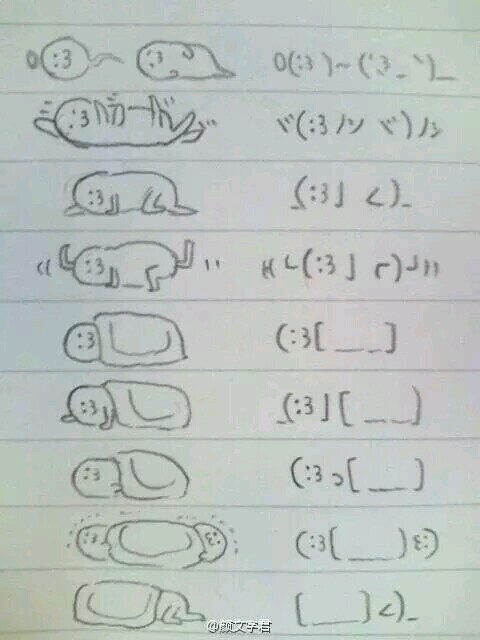 O(:3 )~ ('、3_ヽ)_
ヾ(:3ﾉｼ ヾ)ﾉｼ
_(:3」 <)_
«└(:3」 ┌)┘»
(:3[ ___ ]
_(:3」[ ___ ]
(:3っ[ ___ ]
(:3[ ____ ] ε:)
[ ____ ] <)_
@颜文字君